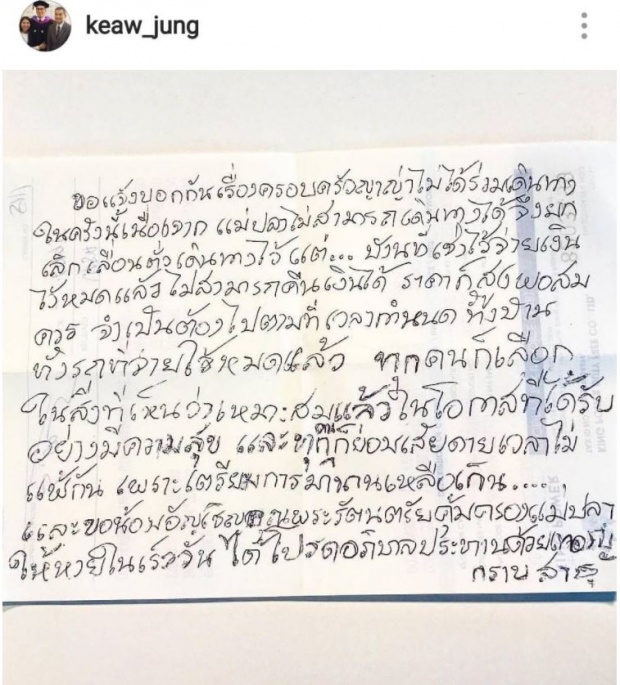 keaw_jung
ขอแจ้งบอกกันเรื่องครอบครัวญาญ่าไม่ได้ร่วมเดินทาง
ในครั้งนี้เนื่องจาก แม่ปลาไม่สามารถเดินทางได้ จึงยก
เลิกเลื่อนตั๋วเดินทางไว้ แต่... บ้านที่เช่าไว้จ่ายเงิน
ไว้หมดแล้วไม่สามารถคืนเงินได้ ราคาก็สูงพอสม
ควร จำเป็นต้องไปตามที่เวลากำหนด ทั้งบ้าน
ทั้งรถที่จ่ายใช้หมดแล้ว ทุกคนก็เลือก
ในสิ่งที่เห็นว่าเหมาะสมแล้วในโอกาสที่ได้รับ
อย่างมีความสุข และทุกคนก็ย่อมเสียดายเวลาไม่
แพ้กัน เพราะเตรียมการมานานเหลือเกิน....,
และขอน้อมอัญเชิญคุณพระรัตนตรัยคุ้มครองแม่ปลา
ให้หายในเร็ววัน ได้โปรดอภิบาลประทานด้วย
กราบ สาธุ